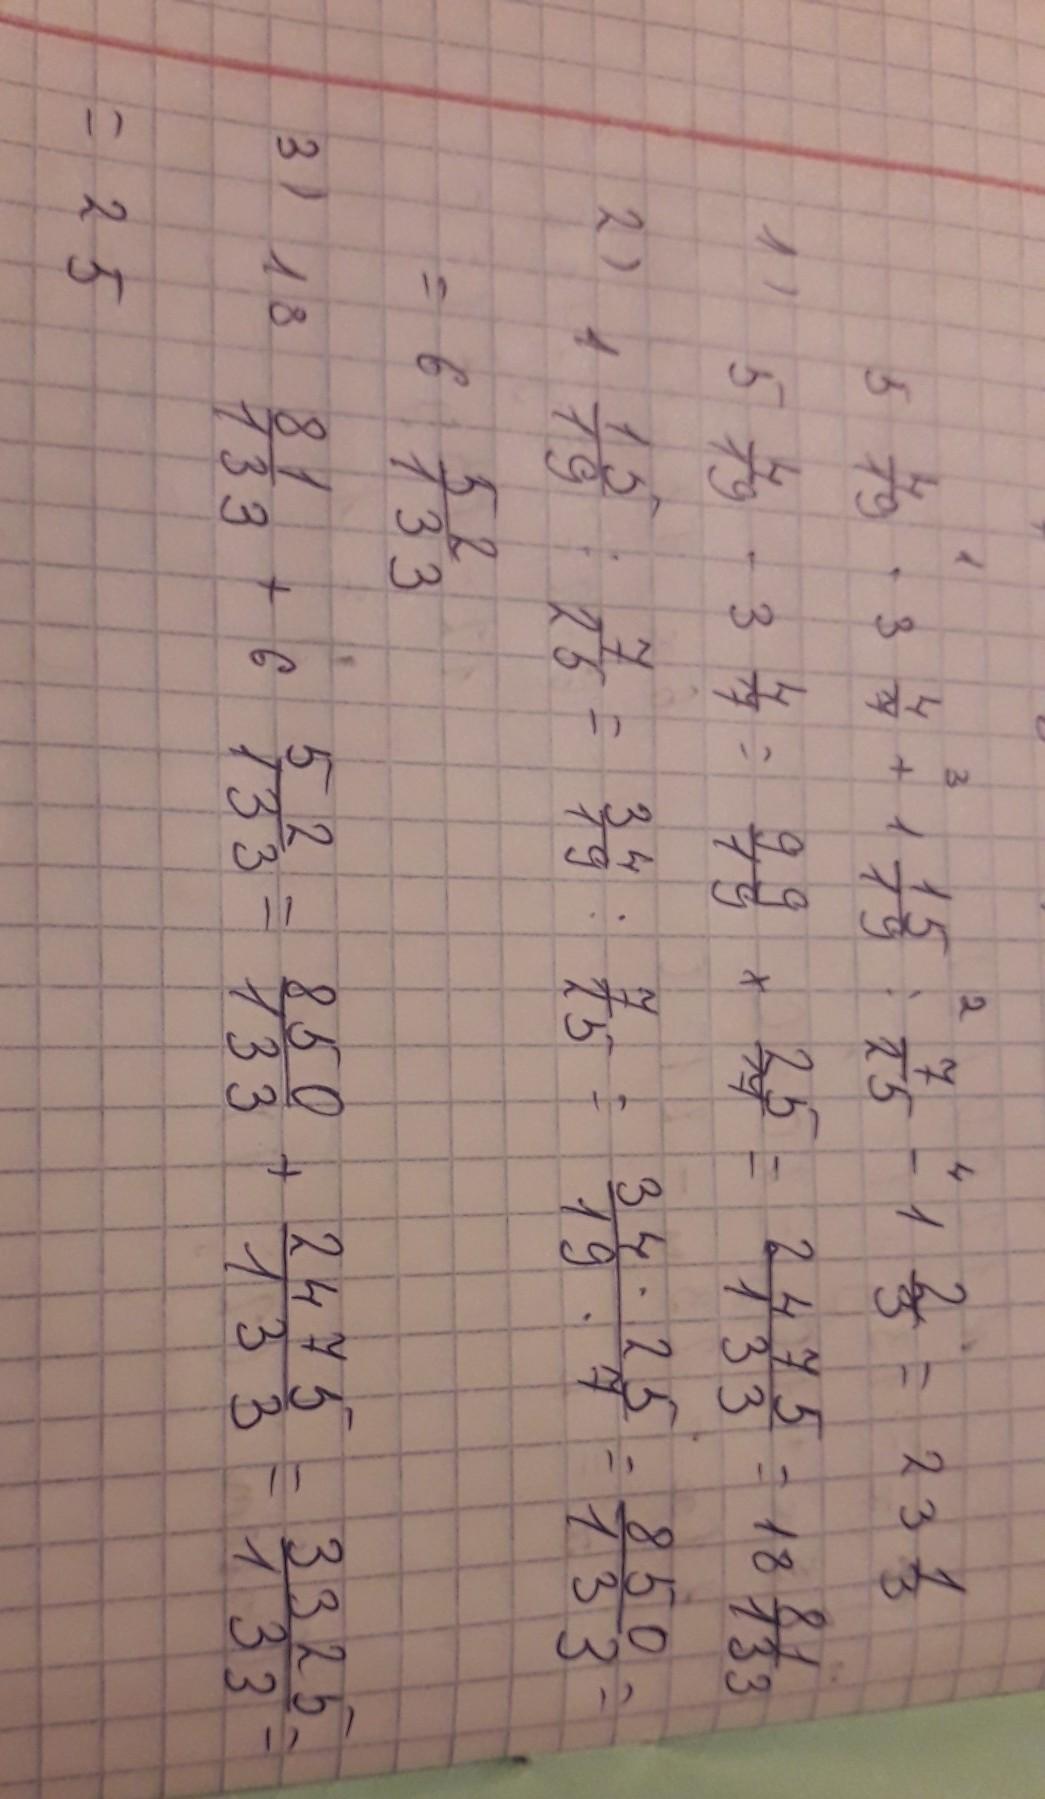 5 4/19 · 3 4/7 + 1 15/19 : 7/25 - 1 2/3 = 23 1/3
1 3 2 4
1) 5 4/19 · 3 4/7 = 99/19 × 25/7 = 2475/133 = 18 81/133
2) 1 15/19 : 7/25 = 34/19 : 7/25 = 34·25/19·7 = 850/133 =
= 6 52/133
3) 18 81/133 + 6 52/133 = 850/133 + 2475/133 = 3325/133 =
= 25